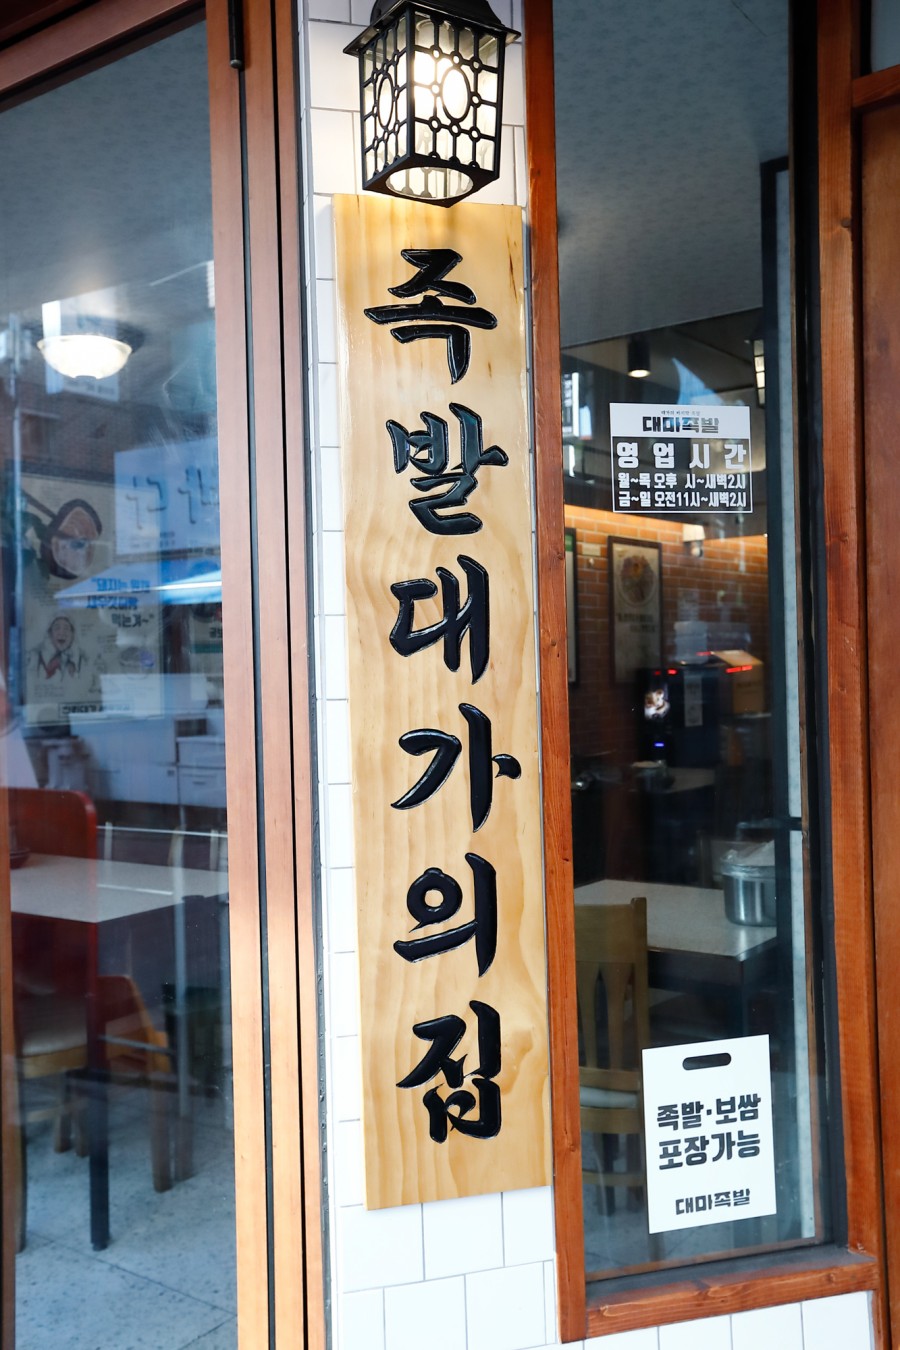 족발대가의집
대마족발
영업시간
월~목 오후 시~새벽2시
금~일 오전11시~새벽2시
족발·보쌈
포장가능
대마족발